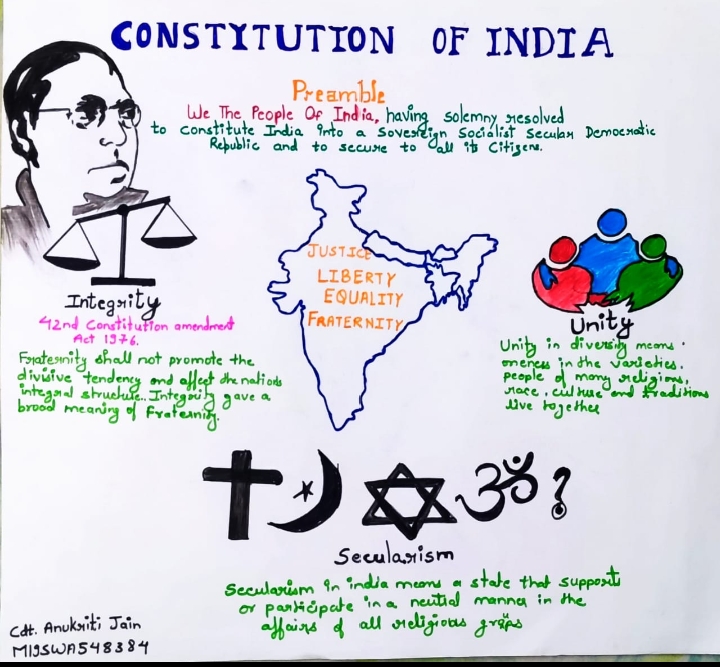 CONSTYTUTION OF INDIA
Preamble
We The People Of India, having solemny resolved
to constitute India into a Sovereign Socialist Secular Democratic
Republic and to secure to all its Citizens.
JUSTICE
LIBERTY
EQUALITY
FRATERNITY
Integrity
42nd Constitution amendment
Act 1976.
Fraternity shall not promote the
divisive tendency and affect the nation's
integral structure.. Integrity gave a
broad meaning of fraternity.
Unity
Unity in diversity means
oneness in the varieties.
people of many religions,
race, culture and traditions
live together
ॐ ?
Secularism
Secularism in india means a state that supports
or participate in a neutial manner in the
affairs of all religious groups
Cdt. Anukriti Jain
MI9SWA548384